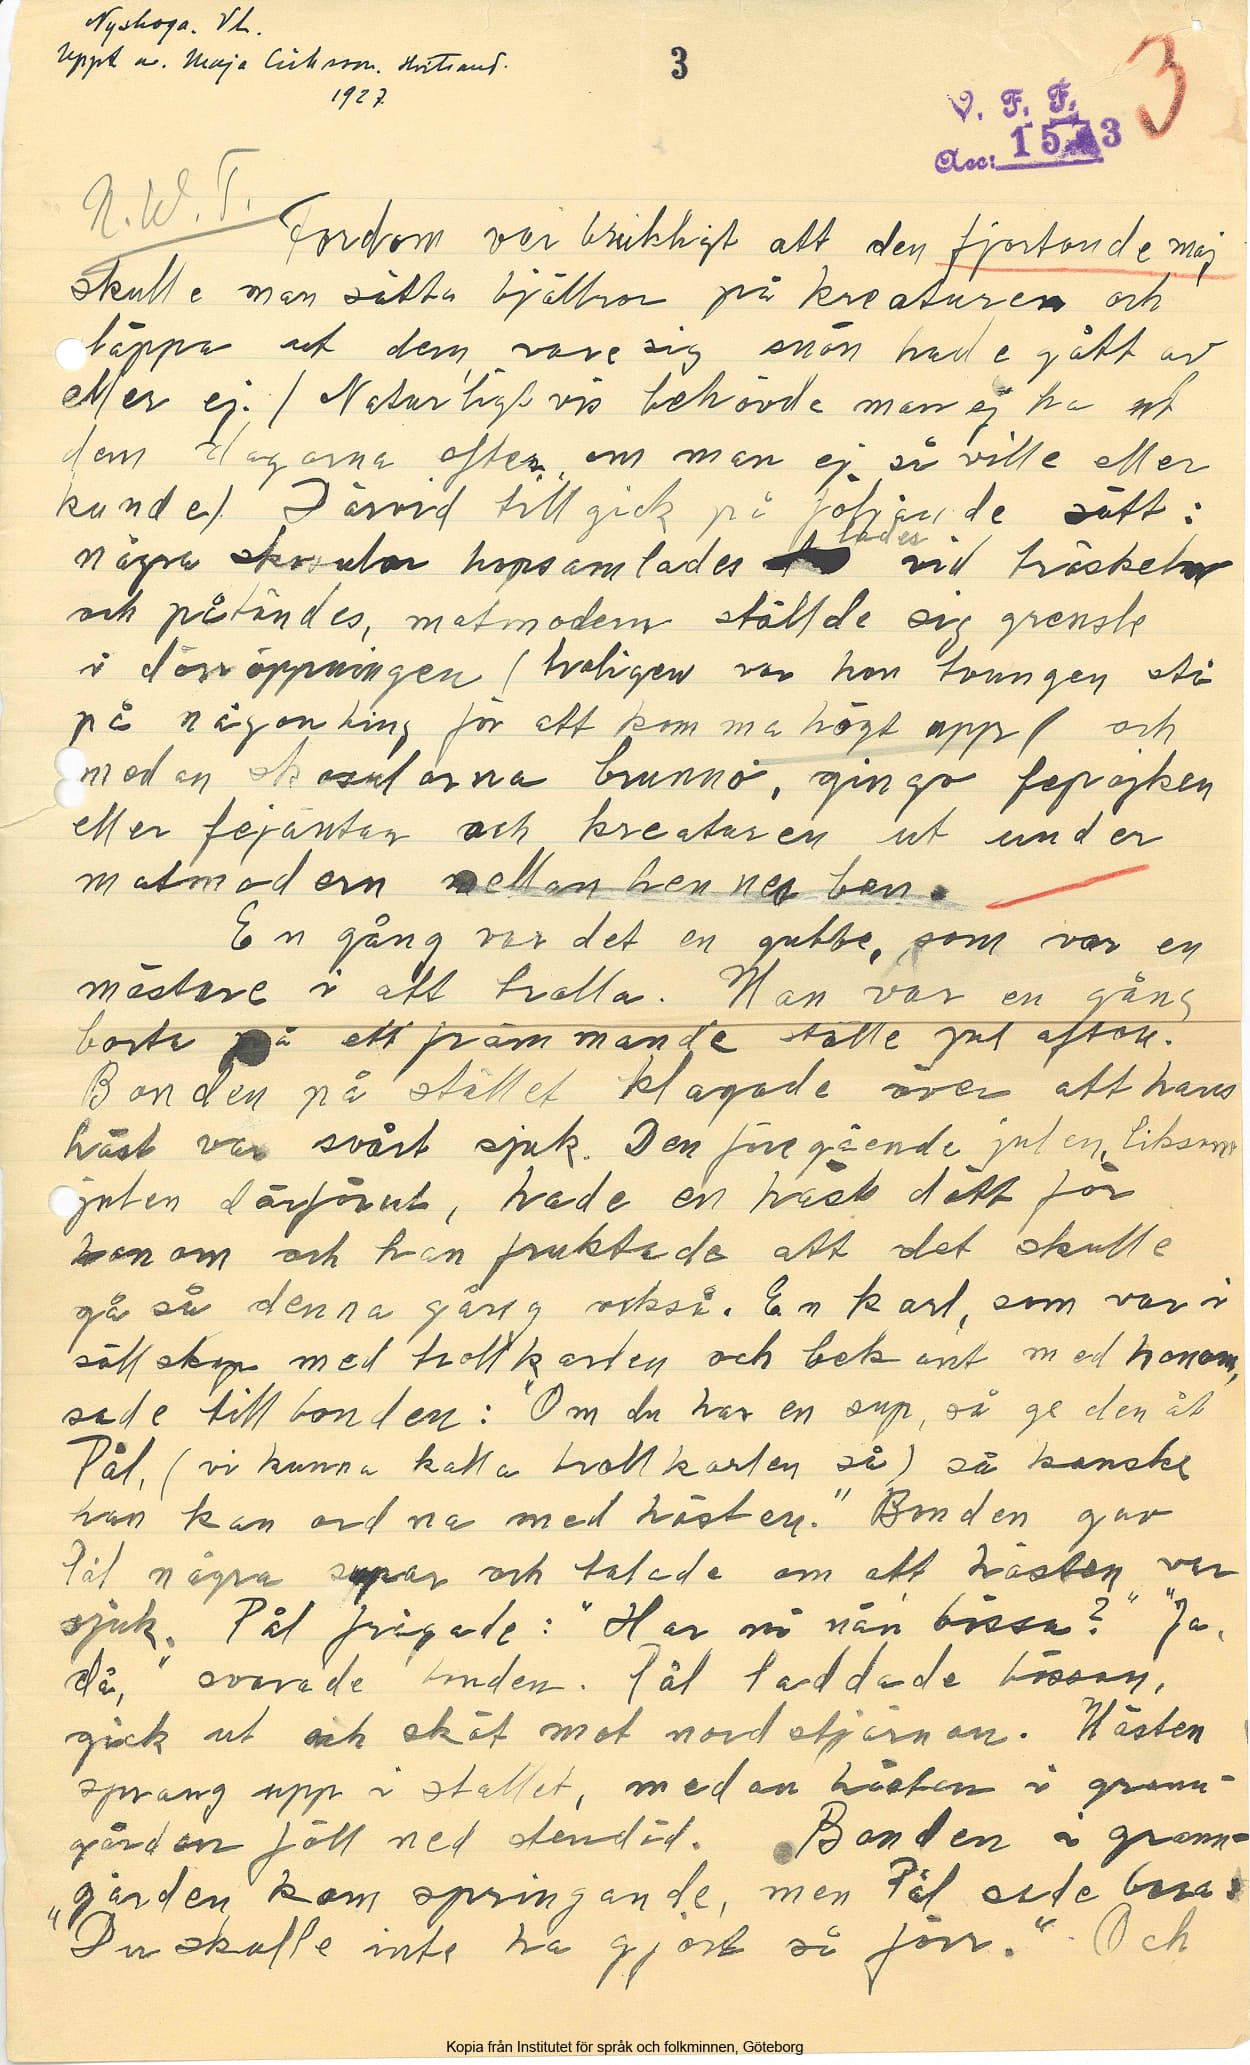 Nyskoga. Vl.
Uppt av. Maja Ericsson. Hvitsand.
1927.
3
3
V. F. F.
Acc: 15 3
N.W.T.
Fordom var brukligt att den fjortonde maj
skulle man sätta bjällror på kreaturen och
släppa ut dem, vare sig snön hade gått av
eller ej. (Naturligtvis behövde man ej ha ut
dem dagarna efter, om man ej så ville eller
kunde). Därvid tillgick på följande sätt:
några skosulor hopsamlades lades vid tröskeln
och påtändes, matmodern ställde sig grensle
i dörröppningen (troligen var hon tvungen stå
på någonting för att komma högt upp) och
medan skosulorna brunno, gingo fepojken
eller fejäntan och kreaturen ut under
matmodern mellan hennes ben.
En gång var det en gubbe, som var en
mästare i att trolla. Han var en gång
borta på ett främmande ställe julafton.
Bonden på stället klagade över att hans
häst var svårt sjuk. Den föregående julen, liksom
julen därförut, hade en häst dött för
honom och han fruktade att det skulle
gå så denna gång också. En karl, som var i
sällskap med trollkarlen och bekant med honom,
sade till bonden: "Om du har en sup, så ge den åt
Pål, (vi kunna kalla trollkarlen så) så kanske
han kan ordna med hästen." Bonden gav
Pål några supar och talade om att hästen var
sjuk. Pål frågade: "Har ni nån bössa?" "Ja,
då," svarade bonden. Pål laddade bössan,
gick ut och sköt mot nordstjärnan. Hästen
sprang upp i stallet, medan hästen i grann-
gården föll ned stendöd. Bonden i grann-
gården kom springande, men Pål sade bara:
"Du skulle inte ha gjort så förr." Och
Kopia från Institutet för språk och folkminnen, Göteborg